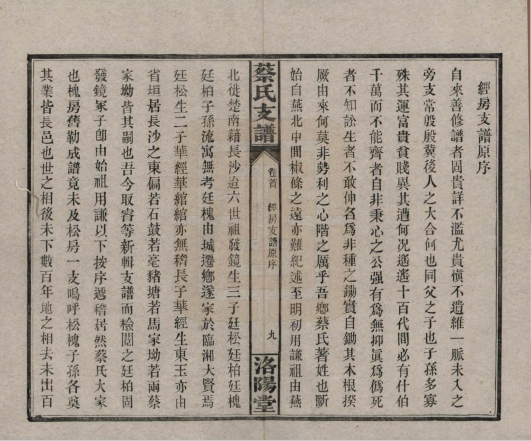 經房支譜原序
自來善修譜者固貴詳不濫尤貴慎不遺雖一脈未入之
旁支常殷殷冀後人之大合何也同父之子也子孫多寡
殊其運富貴貧賤異其遭何况遙遙十百代間必有什伯
千萬而不能齊者自非秉心之公強有爲無抑眞爲僞死
者不知訟生者不敢伸名爲非種之鋤實自鋤其本根揆
厥由來何莫非勢利之心階之厲乎吾鄉蔡氏著姓也斷
始自蕪北中間椒條之遠亦難紀述至明初用謙祖由蕪
蔡氏支譜
卷首
經房支譜原序
九
洛陽堂
北徙楚南籍長沙迨六世祖發鏡生三子廷松廷柏廷槐
廷柏子孫流寓無考廷槐由城遷鄉遂家於臨湘大賢焉
廷松生二子華經華綰綰亦無稽長子華經生東玉亦由
省垣居長沙之東偏若石鼓若亳豬塘若馬家坳若兩蔡
家坳皆其嗣也吾今取睿等新輯支譜而檢閱之廷柏固
發鏡冢子卽由始祖用謙以下按序遞稽居然蔡氏大家
也槐房舊勒成譜竟未及松房一支嗚呼松槐子孫各奠
其業皆長邑也世之相後未下數百年地之相去未出百